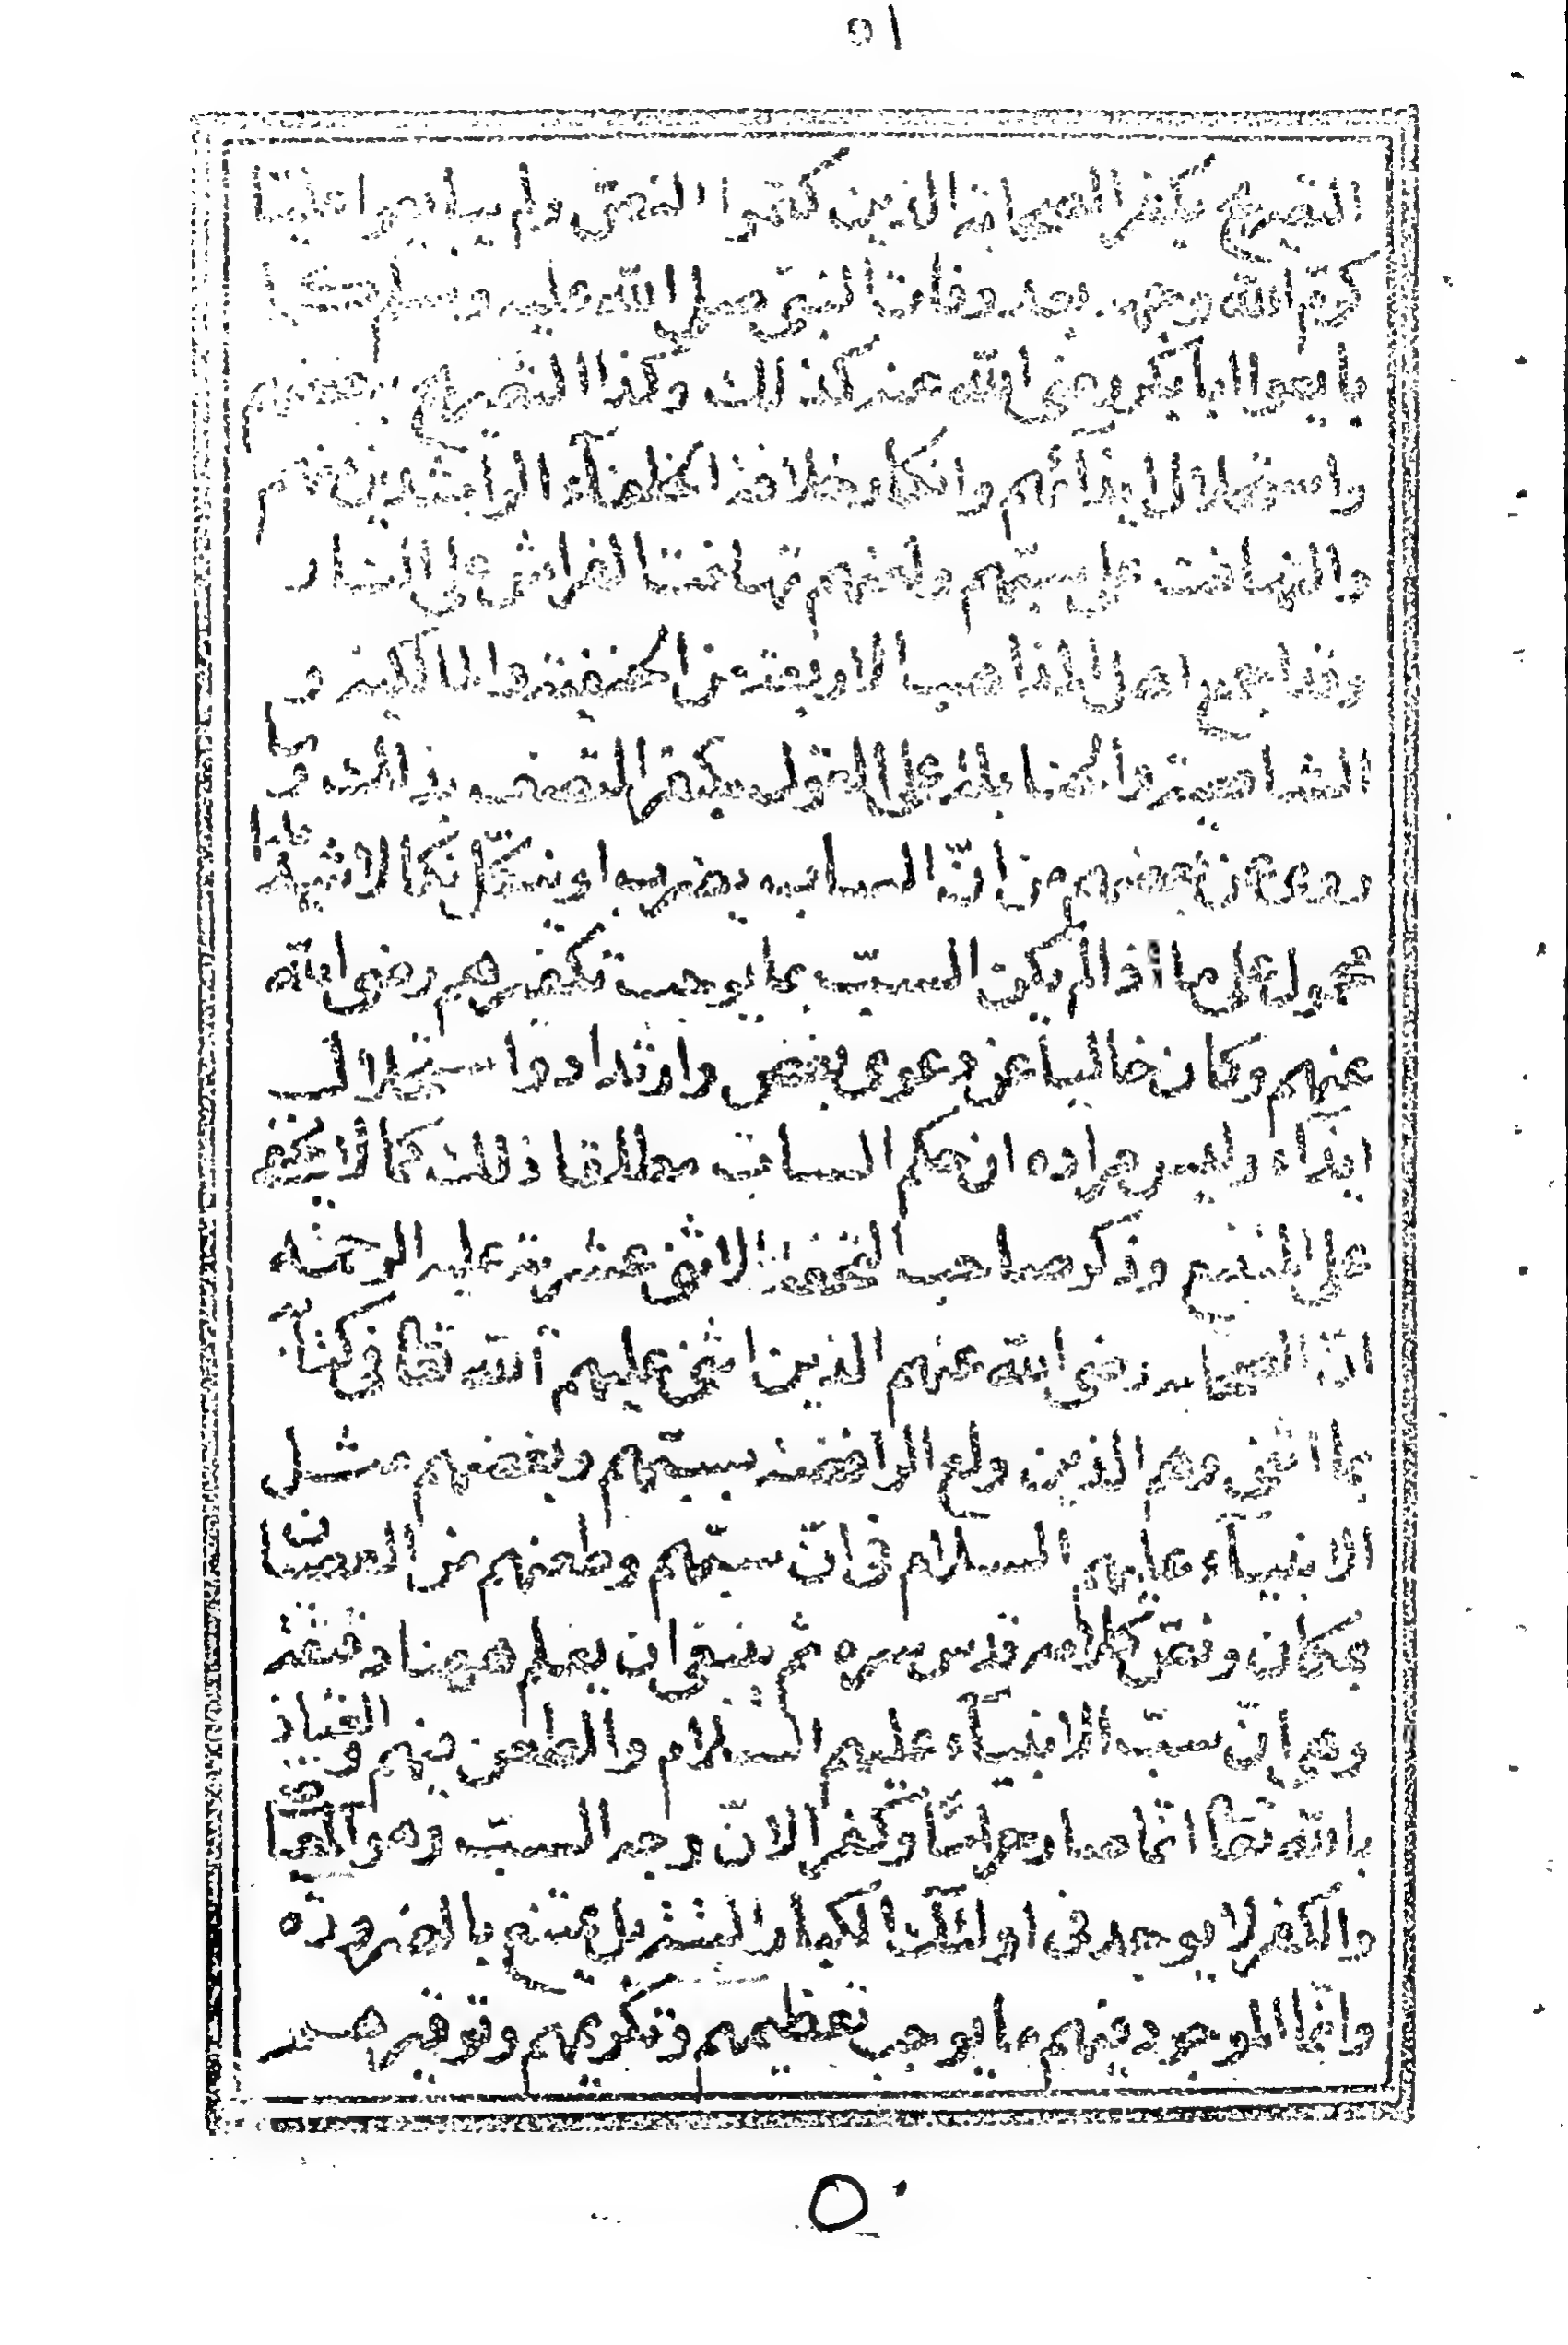 ٥١
التصريح بكفر الصحابة الذين كتموا النص ولم يبايعوا عليا
كرم الله وجهه بعد وفات النبي صلى الله عليه وسلم كما
بايعوا ابا بكر رضي الله عنه كذلك وكذا التصريح ببغضهم
واستحلال ايذآئهم وانكار خلافة الخلفآء الراشدين منهم
والتهافت على سبهم ولعنهم تهافت الفراش على النار
وقد اجمع اهل المذاهب الاربعة من الحنفية والمالكية و
الشافعية والحنابلة على القول بكفر المتصف بذالك وما
روى عن بعضهم من انّ الساب يضرب او ينكّل نكالا شديدا
محمول على ما اذا لم يكن السبّ بما يوجب تكفيرهم رضى الله
عنهم وكان خاليا عن دعوى بغض وارتداد واستحلال
ايذآء وليس مراده ان حكم الساب مطلقا ذلك كما لا يخفى
على المتتبع وذكر صاحب التحفة الاثنى عشرية عليه الرحمة
انّ الصحابه رضى الله عنهم الذين اثنى عليهم الله تعالى في كتابه
بما اثنى وهم الذين ولع الرافضة بسبّهم وبغضهم مثل
الانبيآء عليهم السلام في انّ سبّهم وطعنهم من العصيان
بمكان ونصّ كلامه قدس سره ثم ينبغى ان يعلم ههنا دقيقة
وهو انّ سبّ الانبيآء عليهم السلام والطعن فيهم و العياذ
بالله تعالى انما صار حراما وكفرا لانّ وجه السبّ وهو المعاصى
والكفر لا يوجد في اولئك الكبار البتة بل يمتنع بالضرورة
وانّما الموجود فيهم ما يوجب تعظيمهم وتكريمهم وتوقيرهم
٥٠